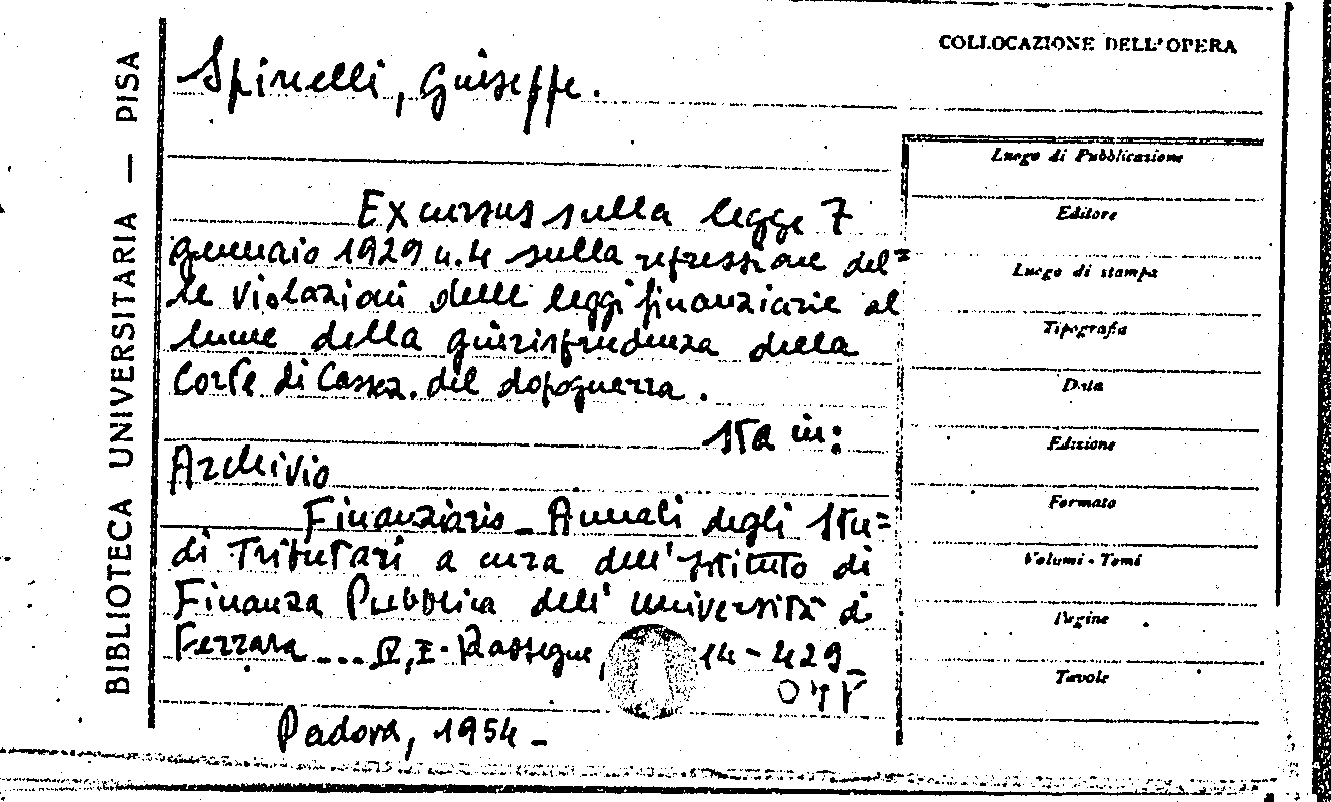 BIBLIOTECA UNIVERSITARIA — PISA
COLLOCAZIONE DELL'OPERA
Spinelli, Giuseppe.
Excursus sulla legge 7
gennaio 1929 n.4 sulla repressione del=
le violazioni delle leggi finanziarie al
lume della giurisprudenza della
Corte di Cassaz. del dopoguerra.
Sta in:
Archivio
Finanziario - Annali degli Stu=
di Tributari a cura dell'Istituto di
Finanza Pubblica dell'Università di
Ferrara ... Rassegne, 14-429_
Padova, 1954 -
Luogo di Pubblicazione
Editore
Luogo di stampa
Tipografia
Data
Edizione
Formato
Volumi - Tomi
Pagine
Tavole